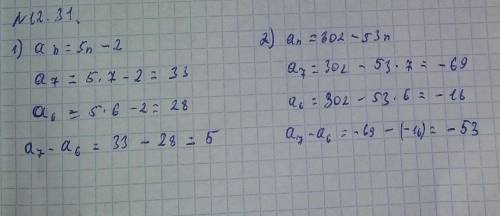 N12.31.
1) an = 5n - 2
a7 = 5·7 - 2 = 33
a6 = 5·6 - 2 = 28
a7 - a6 = 33 - 28 = 5
2) an = 302 - 53n
a7 = 302 - 53·7 = -69
a6 = 302 - 53·6 = -16
a7 - a6 = -69 - (-16) = -53